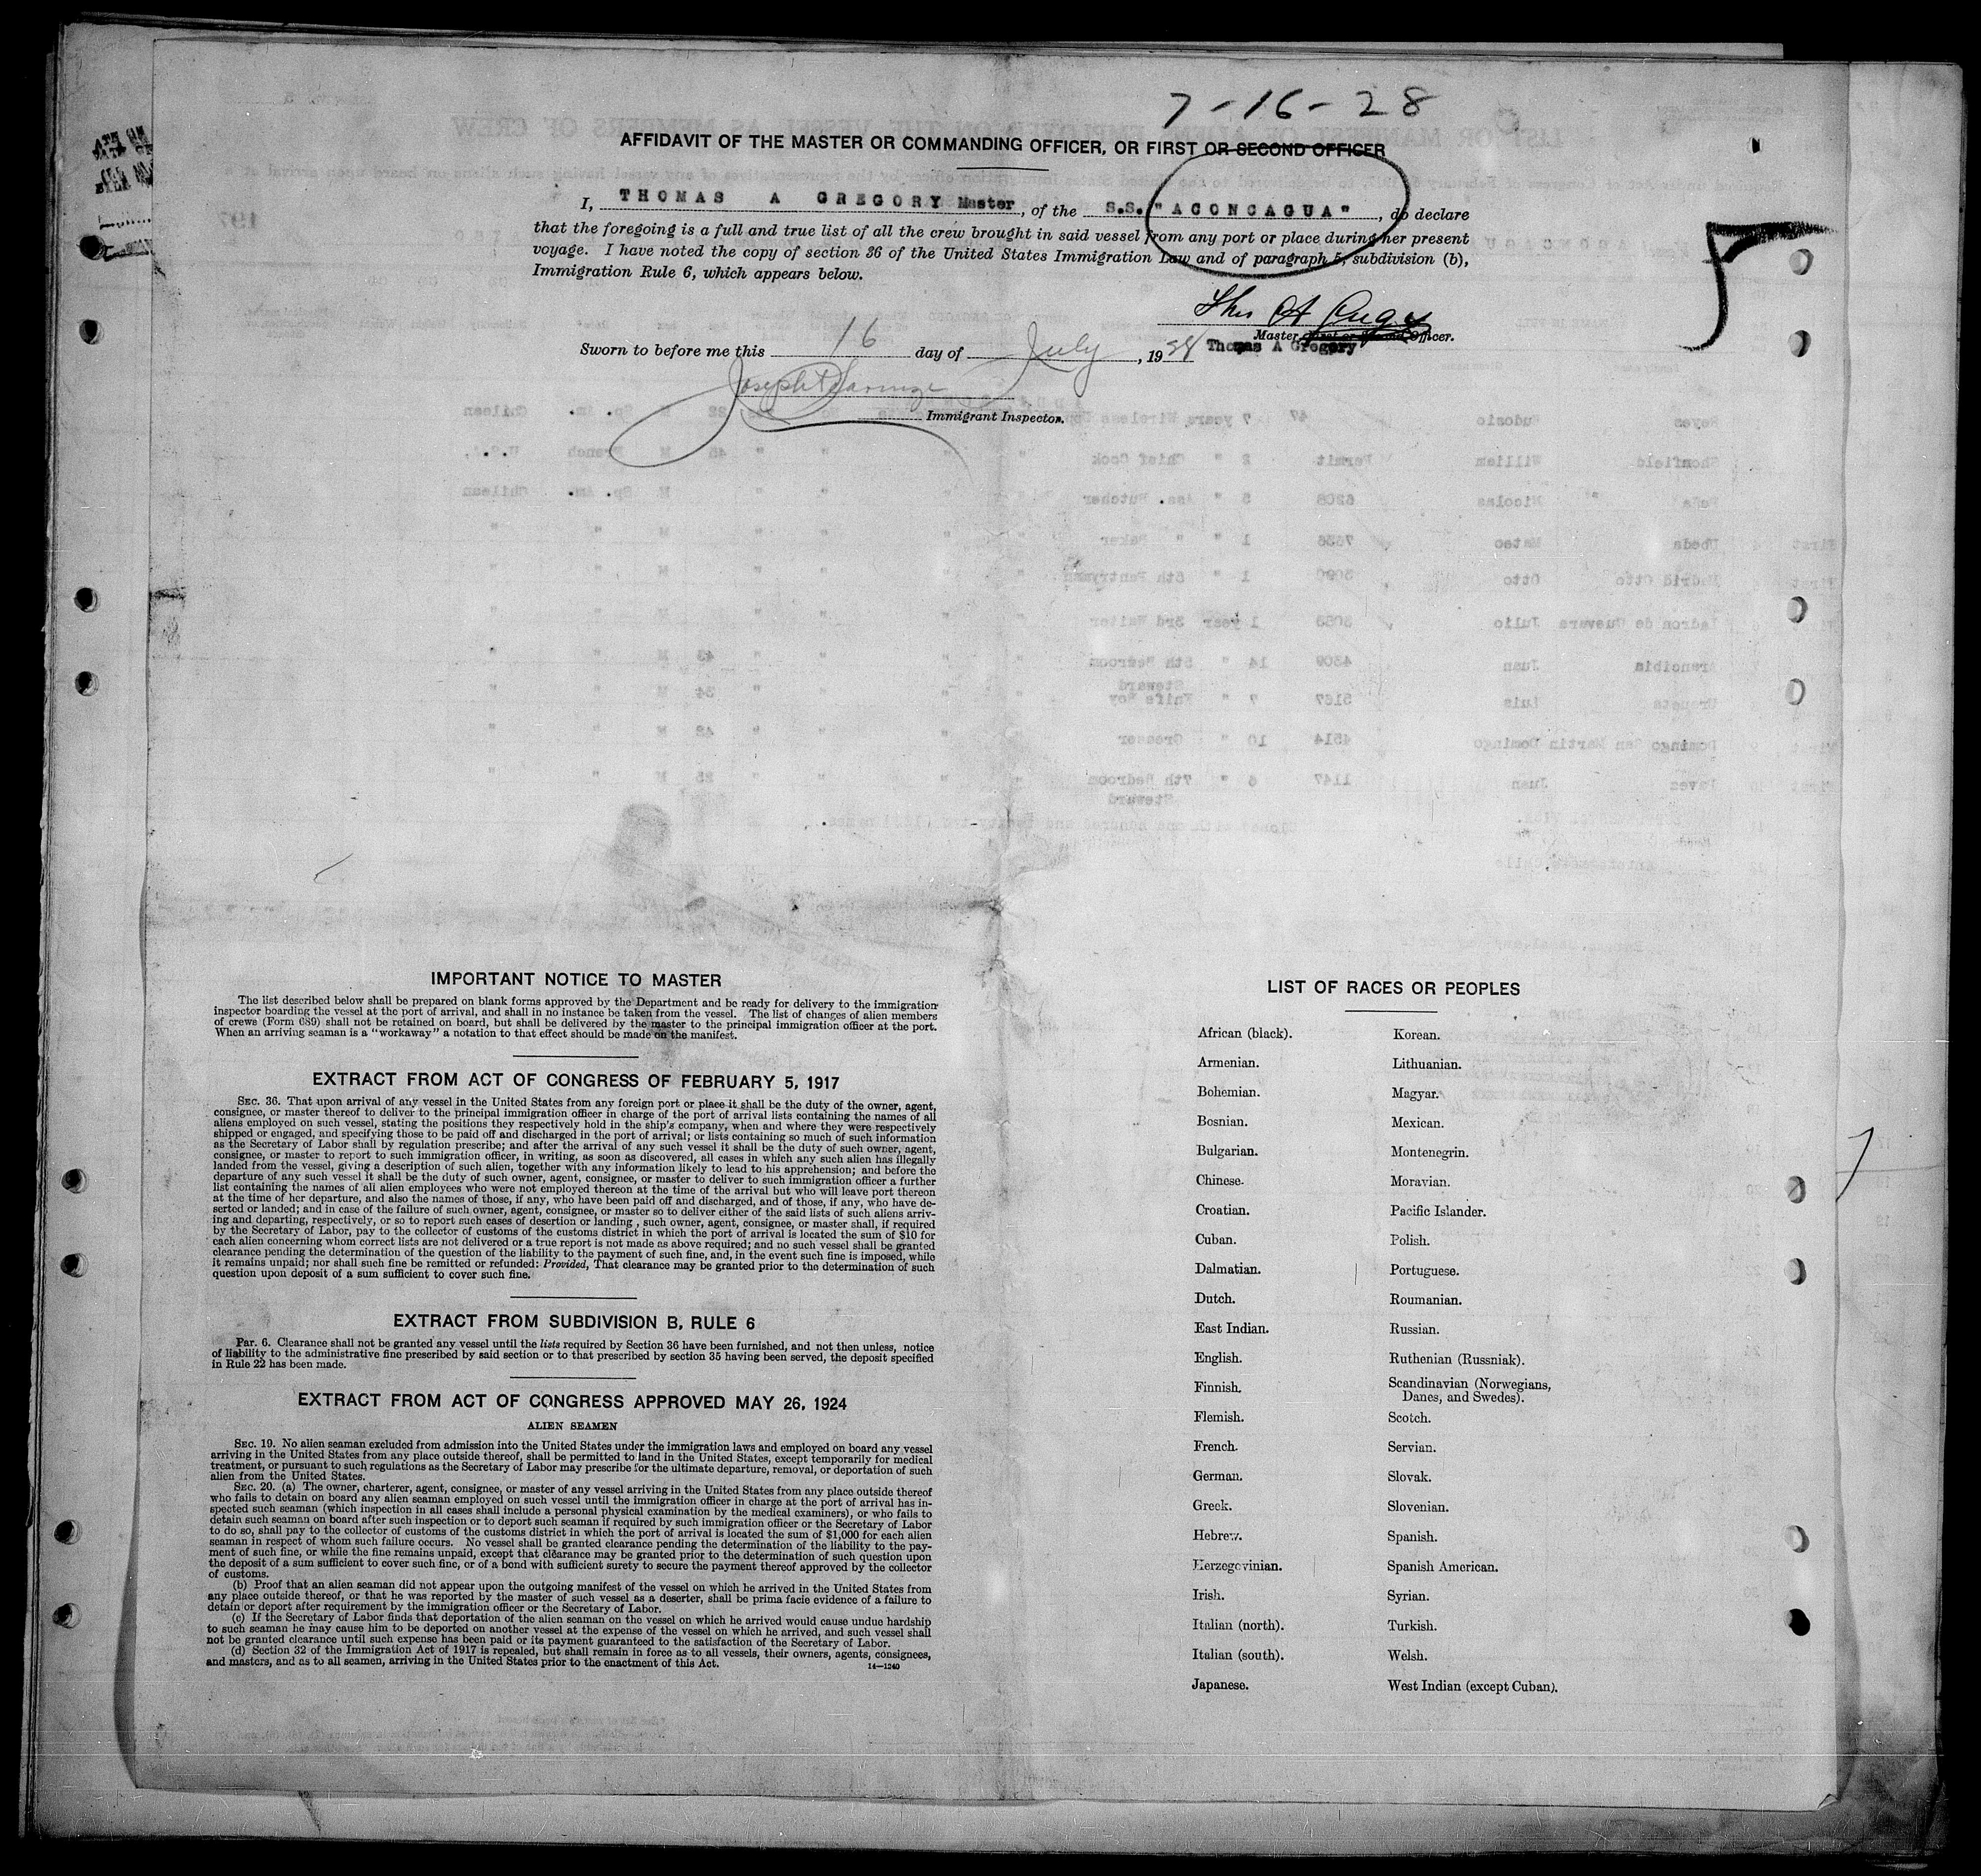 7-16-28
AFFIDAVIT OF THE MASTER OR COMMANDING OFFICER, OR FIRST OR SECOND OFFICER
I, THOMAS A GREGORY Master, of the S.S. "ACONCAGUA", do declare
that the foregoing is a full and true list of all the crew brought in said vessel from any port or place during her present
voyage. I have noted the copy of section 36 of the United States Immigration Law and of paragraph 5, subdivision (b),
Immigration Rule 6, which appears below.
5
Thos A
Master, First or Second Officer.
Thomas A Gregory
Sworn to before me this 16 day of July, 1928
Joseph
Immigrant Inspector.
IMPORTANT NOTICE TO MASTER
The list described below shall be prepared on blank forms approved by the Department and be ready for delivery to the immigration
inspector boarding the vessel at the port of arrival, and shall in no instance be taken from the vessel. The list of changes of alien members
of crews (Form 689) shall not be retained on board, but shall be delivered by the master to the principal immigration officer at the port.
When an arriving seaman is a "workaway" a notation to that effect should be made on the manifest.
EXTRACT FROM ACT OF CONGRESS OF FEBRUARY 5, 1917
SEC. 36. That upon arrival of any vessel in the United States from any foreign port or place it shall be the duty of the owner, agent,
consignee, or master thereof to deliver to the principal immigration officer in charge of the port of arrival lists containing the names of all
aliens employed on such vessel, stating the positions they respectively hold in the ship's company, when and where they were respectively
shipped or engaged, and specifying those to be paid off and discharged in the port of arrival; or lists containing so much of such information
as the Secretary of Labor shall by regulation prescribe; and after the arrival of any such vessel it shall be the duty of such owner, agent,
consignee, or master to report to such immigration officer, in writing, as soon as discovered, all cases in which any such alien has illegally
landed from the vessel, giving a description of such alien, together with any information likely to lead to his apprehension; and before the
departure of any such vessel it shall be the duty of such owner, agent, consignee, or master to deliver to such immigration officer a further
list containing the names of all alien employees who were not employed thereon at the time of the arrival but who will leave port thereon
at the time of her departure, and also the names of those, if any, who have been paid off and discharged, and of those, if any, who have de-
serted or landed; and in case of the failure of such owner, agent, consignee, or master so to deliver either of the said lists of such aliens arriv-
ing and departing, respectively, or so to report such cases of desertion or landing, such owner, agent, consignee, or master shall, if required
by the Secretary of Labor, pay to the collector of customs of the customs district in which the port of arrival is located the sum of $10 for
each alien concerning whom correct lists are not delivered or a true report is not made as above required; and no such vessel shall be granted
clearance pending the determination of the question of the liability to the payment of such fine, and, in the event such fine is imposed, while
it remains unpaid; nor shall such fine be remitted or refunded: Provided, That clearance may be granted prior to the determination of such
question upon deposit of a sum sufficient to cover such fine.
EXTRACT FROM SUBDIVISION B, RULE 6
Par. 6. Clearance shall not be granted any vessel until the lists required by Section 36 have been furnished, and not then unless, notice
of liability to the administrative fine prescribed by said section or to that prescribed by section 35 having been served, the deposit specified
in Rule 22 has been made.
EXTRACT FROM ACT OF CONGRESS APPROVED MAY 26, 1924
ALIEN SEAMEN
SEC. 19. No alien seaman excluded from admission into the United States under the immigration laws and employed on board any vessel
arriving in the United States from any place outside thereof, shall be permitted to land in the United States, except temporarily for medical
treatment, or pursuant to such regulations as the Secretary of Labor may prescribe for the ultimate departure, removal, or deportation of such
alien from the United States.
SEC. 20. (a) The owner, charterer, agent, consignee, or master of any vessel arriving in the United States from any place outside thereof
who fails to detain on board any alien seaman employed on such vessel until the immigration officer in charge at the port of arrival has in-
spected such seaman (which inspection in all cases shall include a personal physical examination by the medical examiners), or who fails to
detain such seaman on board after such inspection or to deport such seaman if required by such immigration officer or the Secretary of Labor
to do so, shall pay to the collector of customs of the customs district in which the port of arrival is located the sum of $1,000 for each alien
seaman in respect of whom such failure occurs. No vessel shall be granted clearance pending the determination of the liability to the pay-
ment of such fine, or while the fine remains unpaid, except that clearance may be granted prior to the determination of such question upon
the deposit of a sum sufficient to cover such fine, or of a bond with sufficient surety to secure the payment thereof approved by the collector
of customs.
(b) Proof that an alien seaman did not appear upon the outgoing manifest of the vessel on which he arrived in the United States from
any place outside thereof, or that he was reported by the master of such vessel as a deserter, shall be prima facie evidence of a failure to
detain or deport after requirement by the immigration officer or the Secretary of Labor.
(c) If the Secretary of Labor finds that deportation of the alien seaman on the vessel on which he arrived would cause undue hardship
to such seaman he may cause him to be deported on another vessel at the expense of the vessel on which he arrived, and such vessel shall
not be granted clearance until such expense has been paid or its payment guaranteed to the satisfaction of the Secretary of Labor.
(d) Section 32 of the Immigration Act of 1917 is repealed, but shall remain in force as to all vessels, their owners, agents, consignees,
and masters, and as to all seamen, arriving in the United States prior to the enactment of this Act.
14—1240
LIST OF RACES OR PEOPLES
African (black). Korean.
Armenian. Lithuanian.
Bohemian. Magyar.
Bosnian. Mexican.
Bulgarian. Montenegrin.
Chinese. Moravian.
Croatian. Pacific Islander.
Cuban. Polish.
Dalmatian. Portuguese.
Dutch. Roumanian.
East Indian. Russian.
English. Ruthenian (Russniak).
Finnish. Scandinavian (Norwegians,
Danes, and Swedes).
Flemish. Scotch.
French. Servian.
German. Slovak.
Greek. Slovenian.
Hebrew. Spanish.
Herzegovinian. Spanish American.
Irish. Syrian.
Italian (north). Turkish.
Italian (south). Welsh.
Japanese. West Indian (except Cuban).